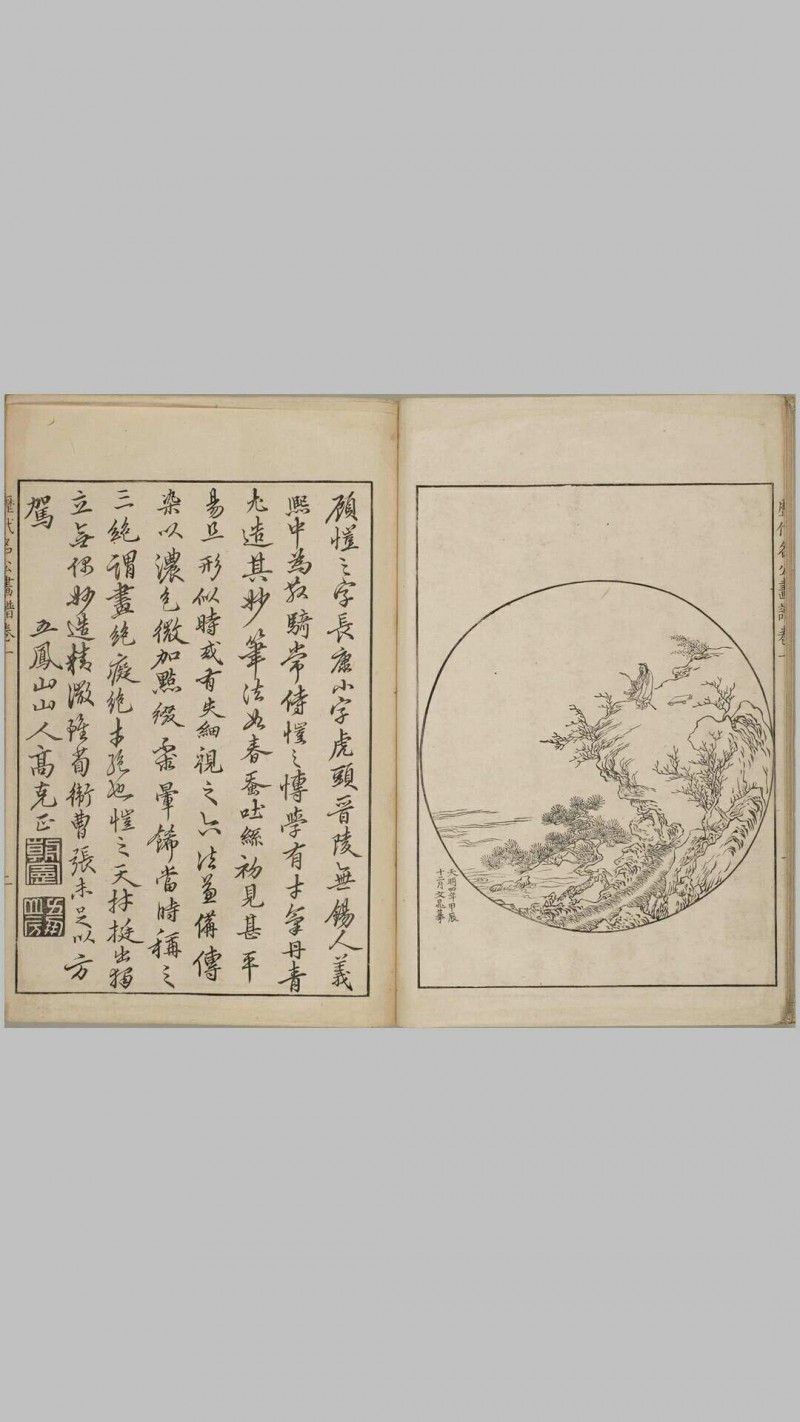 歷代名公畫譜卷一
天明四年甲辰
十二月文晁摹
顧愷之字長康小字虎頭晉陵無錫人義
熙中為散騎常侍愷之博學有才氣丹青
尤造其妙筆法如春蚕吐絲初見甚平
易且形似時或有失細視之六法兼備傅
染以濃色微加點綴不暈飾當時稱之
三絶謂畫絶癡絶才絶也愷之天材挺出獨
立無偶妙造精微雖荀衛曹張未足以方
駕
五鳳山山人高克正
歷代名公畫譜卷一